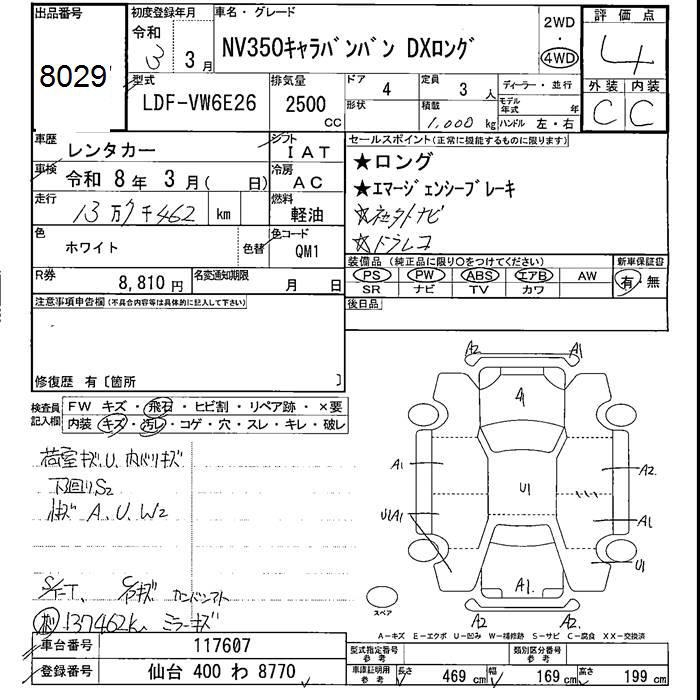 出品番号
8029
初度登録年月
令和
3 3月
車名・グレード
NV350キャラバンバン DXロング
2WD
・
4WD
評価点
4
外装 内装
C C
型式
LDF-VW6E26
排気量
2500
CC
ドア
4
形状
定員
3 人
積載
1,000 kg
ディーラー・並行
モデル年式 年
ハンドル 左・右
車歴
レンタカー
シフト
IAT
車検
令和 8年 3月( 日)
冷房
AC
走行
13万7千462 km
燃料
軽油
色
ホワイト
色替
色コード
QM1
R券
8,810円
名変通知期限
月 日
セールスポイント(正常に機能するものに限ります)
★ロング
★エマージェンシーブレーキ
☆ドラレコ
装備品 (純正品に限り〇をつけてください)
PS PW ABS エアB AW
SR ナビ TV カワ
新車保証書
有・無
後日品
注意事項申告欄(不具合内容等は具体的に記入して下さい)
修復歴 有〔箇所 〕
検査員記入欄
FW キズ・飛石・ヒビ割・リペア跡・×要
内装 キズ・汚レ・コゲ・穴・スレ・キレ・破レ
荷室キズ、U、内バリキズ
下回りS2
A、U、W2
137462K ミラーキズ
A2 A1
4
A1 A2
U1
U1A1 A1
U1
A1
A2 A2
スペア
A-キズ E-エクボ U-凹み W-補修跡 S-サビ C-腐食 XX-交換済
車台番号
117607
登録番号
仙台 400 わ 8770
型式指定番号
参考
類別区分番号
参考
車庫証明用
参考
長さ 469 cm
幅 169 cm
高さ 199 cm